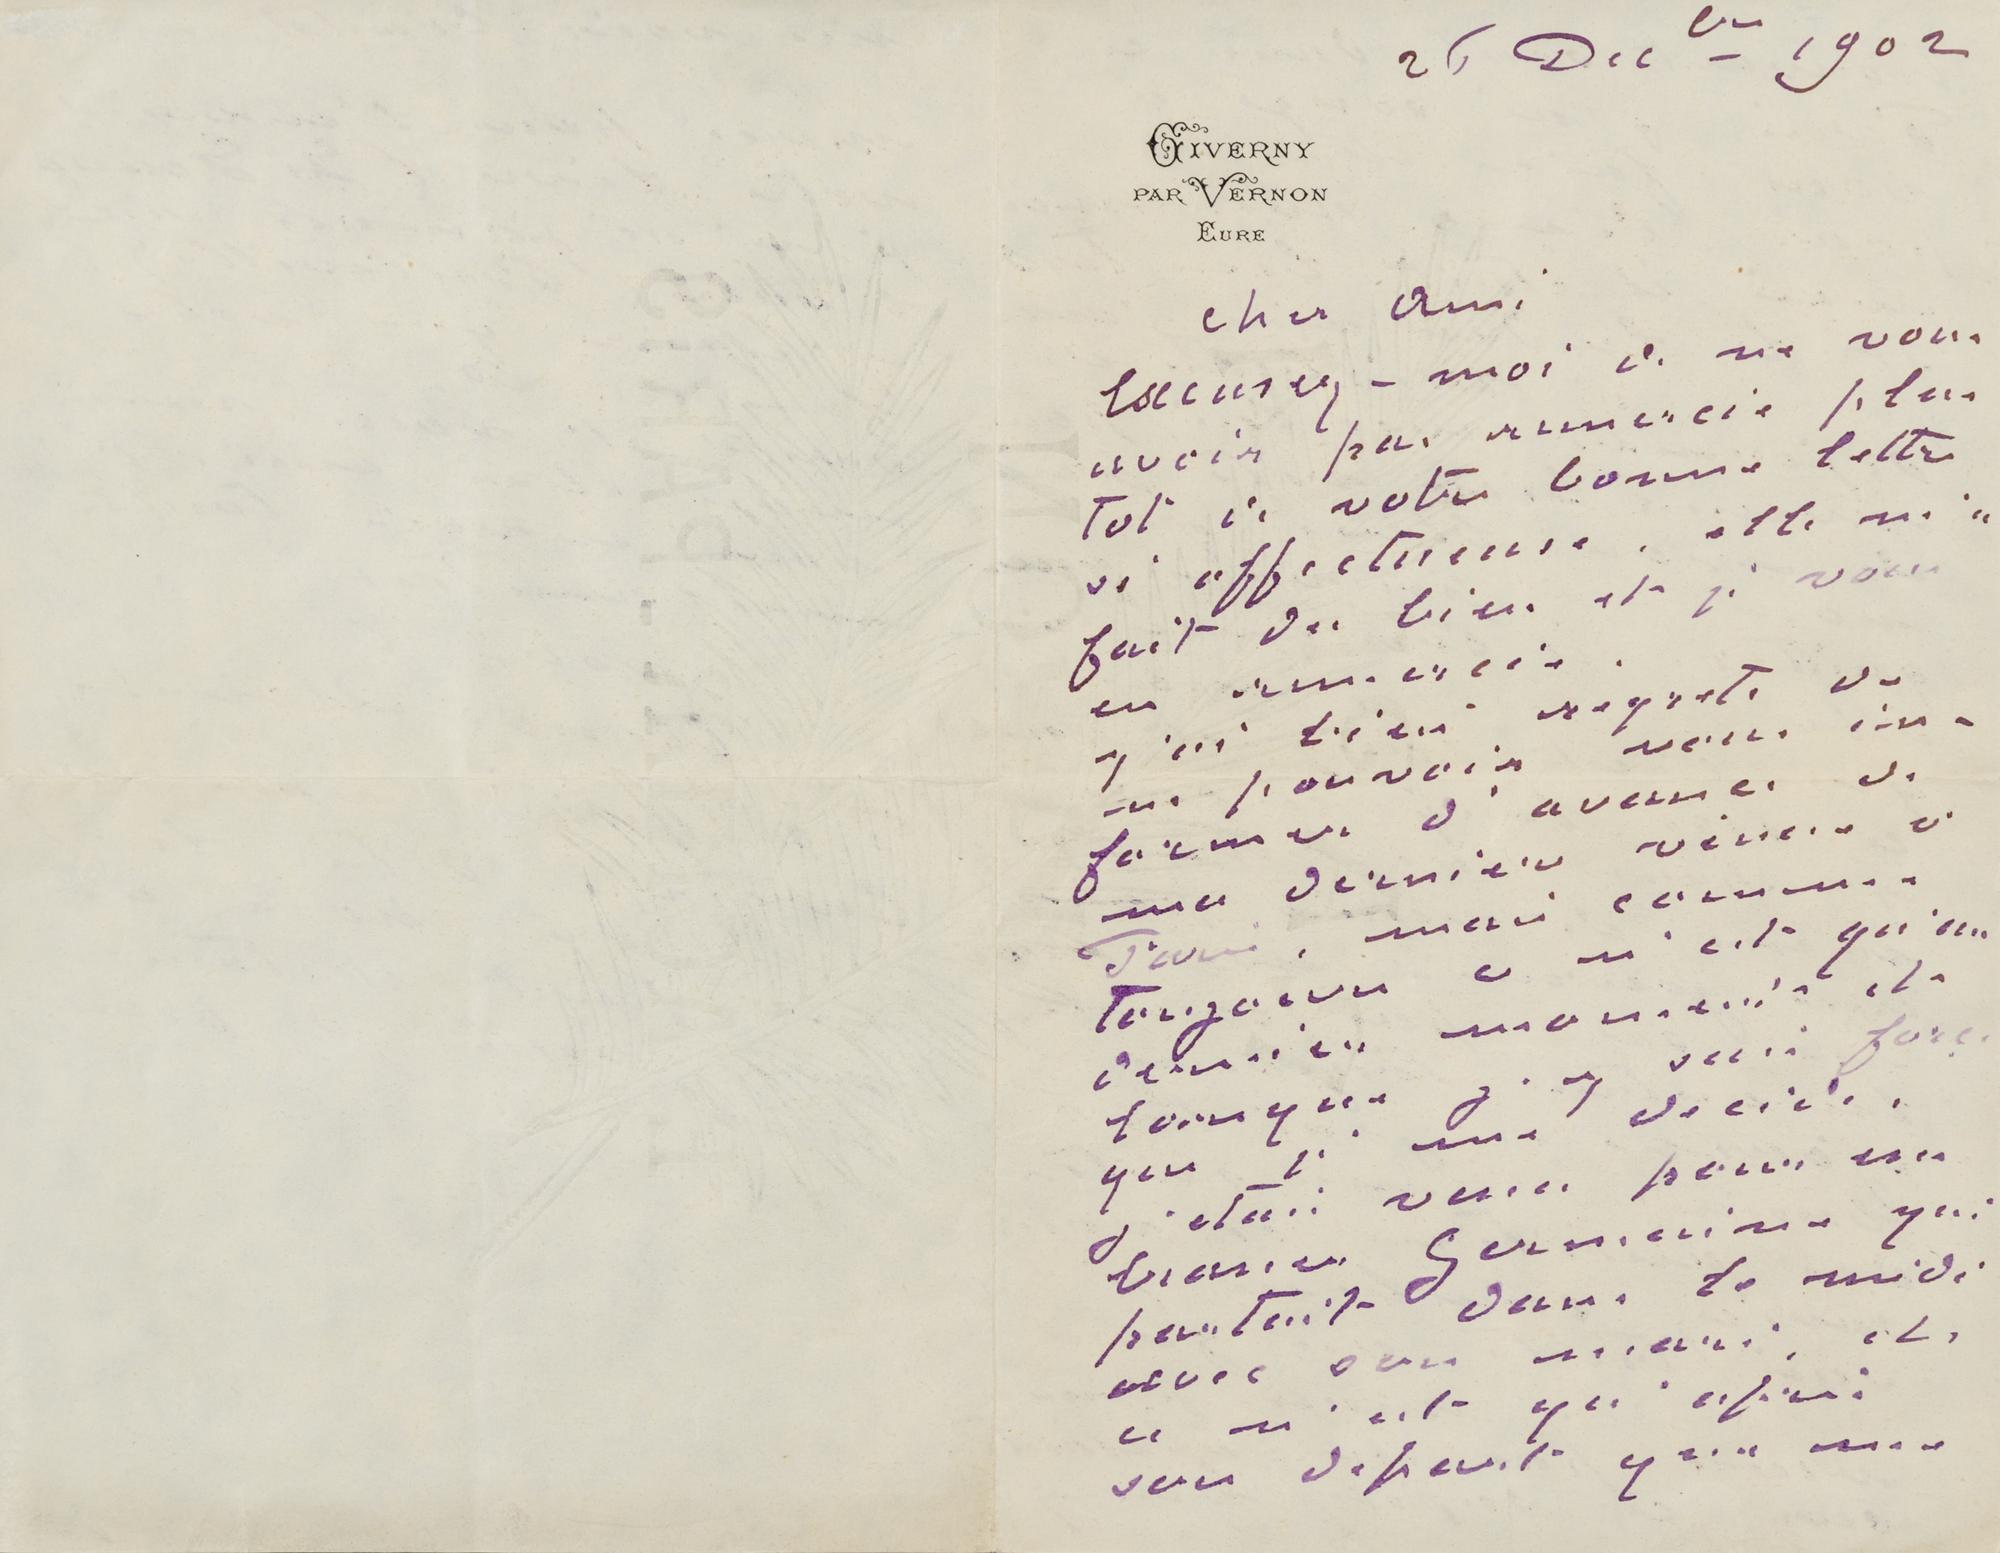 25 Dec bre 1902
GIVERNY
PAR VERNON
EURE
cher Ami
Excusez-moi de ne vous
avoir pas remercié plus
tôt de votre bonne lettre
si affectueuse. elle m'a
fait du bien et je vous
en remercie.
j'ai bien regretté de
ne pouvoir vous in-
former d'avance de
ma dernière venue à
Paris, mais comme
toujours ce n'est qu'au
dernier moment et
lorsque j'y suis forcé
que je me décide.
j'étais venu pour em-
brasser Germaine qui
partait dans le midi
avec son mari, et
ce n'est qu'après
son départ que ma